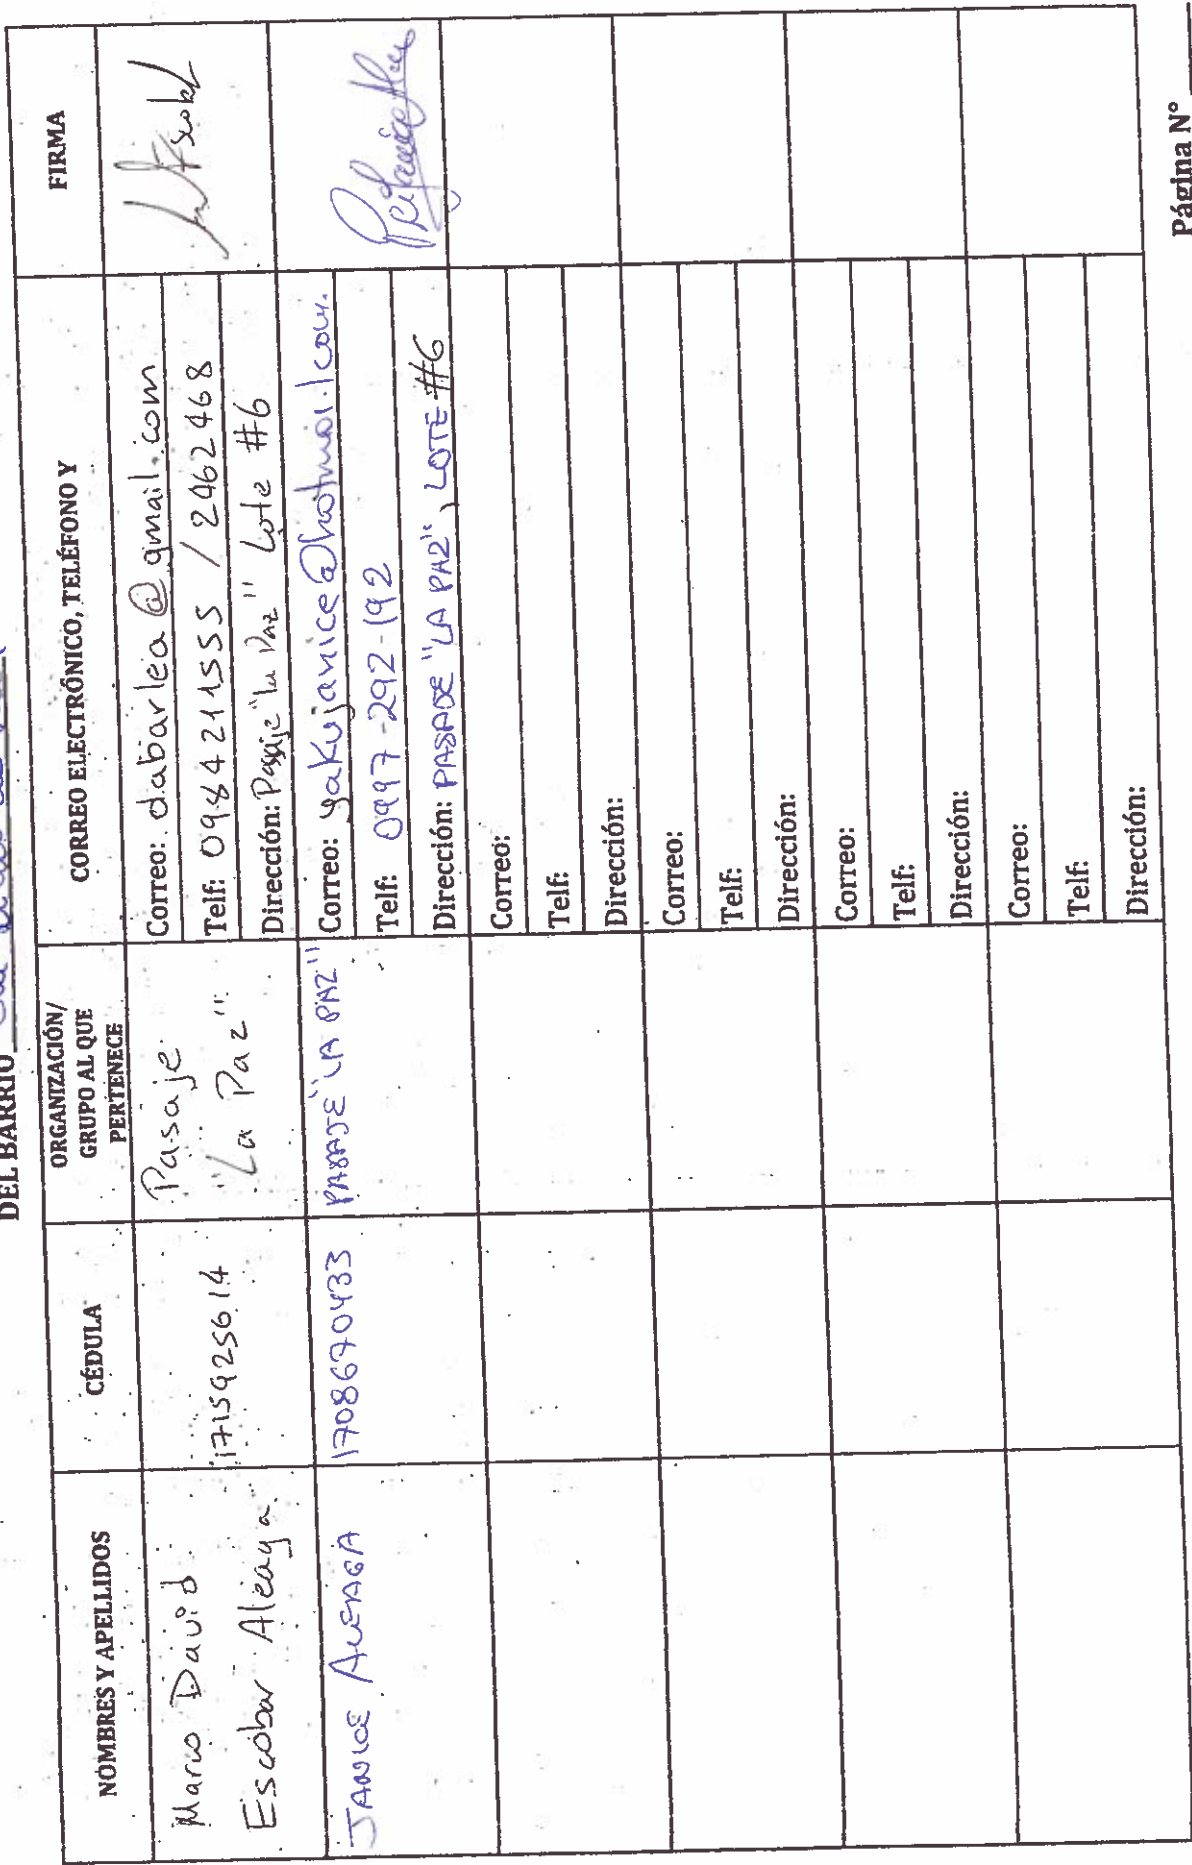 DEL BARRIO
NOMBRES Y APELLIDOS
CÉDULA
ORGANIZACIÓN/
GRUPO AL QUE
PERTENECE
CORREO ELECTRÓNICO, TELÉFONO Y
FIRMA
Mario David
Escobar Aleaga
1715925614
Pasaje
"La Paz"
Correo: dabarlea@gmail.com
Telf: 0984211555 / 2462468
Dirección: Pasaje "La Paz" Lote #6
JANICE ALEAGA
1708670433
PASAJE "LA PAZ"
Correo: yakujanice@hotmail.com.
Telf: 0997-292-192
Dirección: PASAJE "LA PAZ", LOTE #6
Correo:
Telf:
Dirección:
Correo:
Telf:
Dirección:
Correo:
Telf:
Dirección:
Correo:
Telf:
Dirección:
Página N°